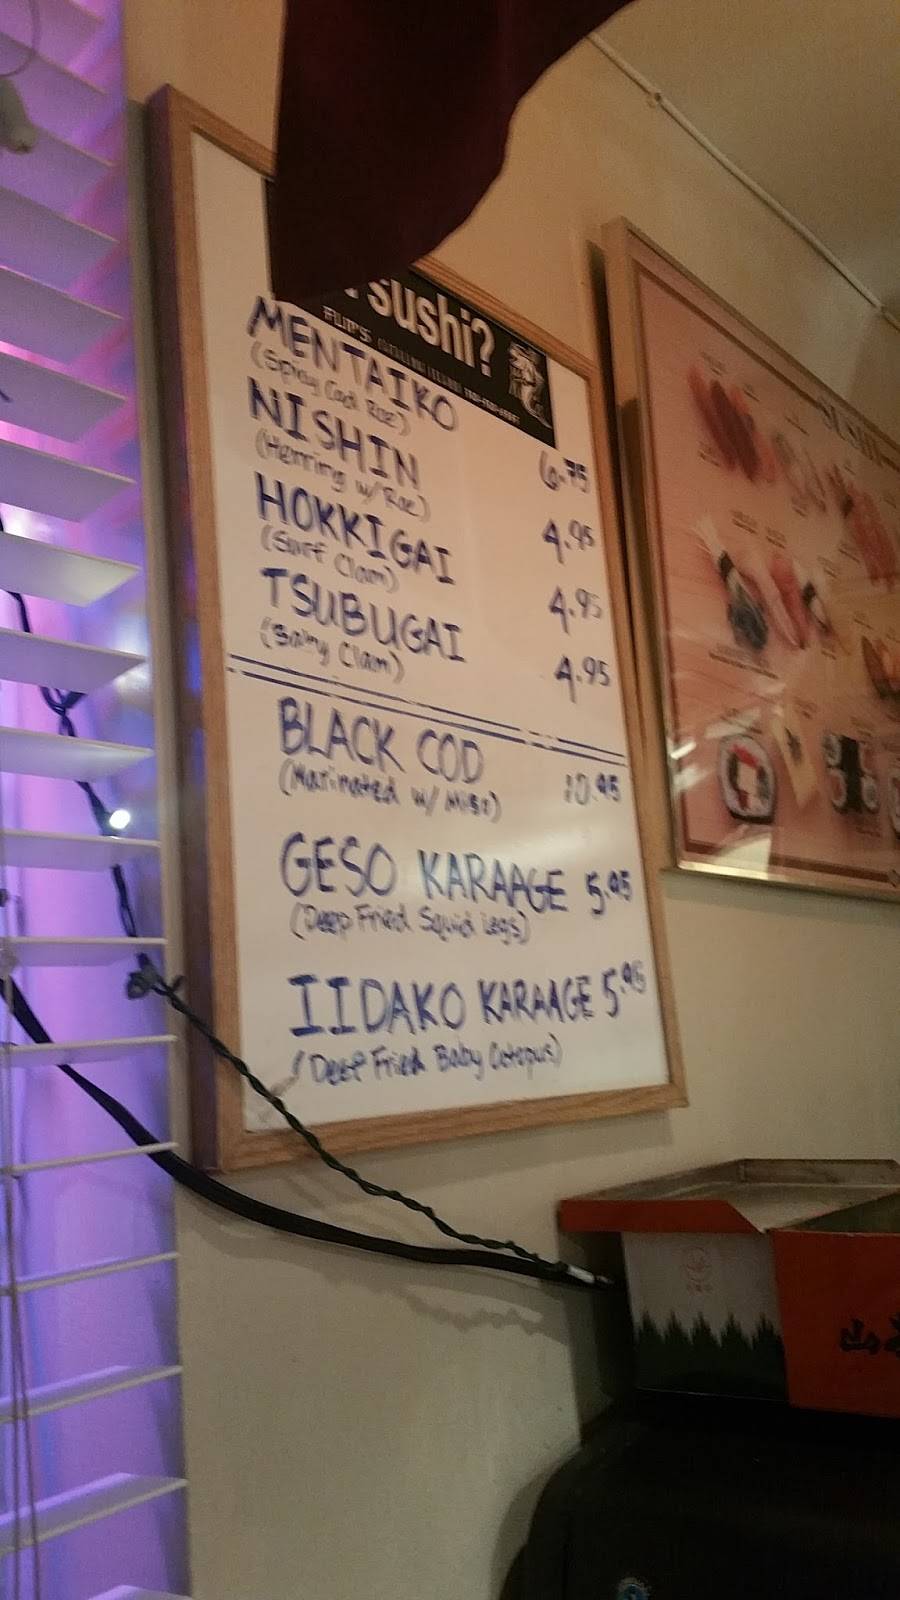 sushi?
FLIP'S
MENTAIKO
(Spicy Cod Roe) 6.75
NISHIN
(Herring w/Roe) 4.95
HOKKIGAI
(Surf Clam) 4.95
TSUBUGAI
(Baby Clam) 4.95
BLACK COD
(Marinated w/ Miso) 10.95
GESO KARAAGE 5.95
(Deep Fried Squid Legs)
IIDAKO KARAAGE 5.95
(Deep Fried Baby Octopus)
SUSHI
山